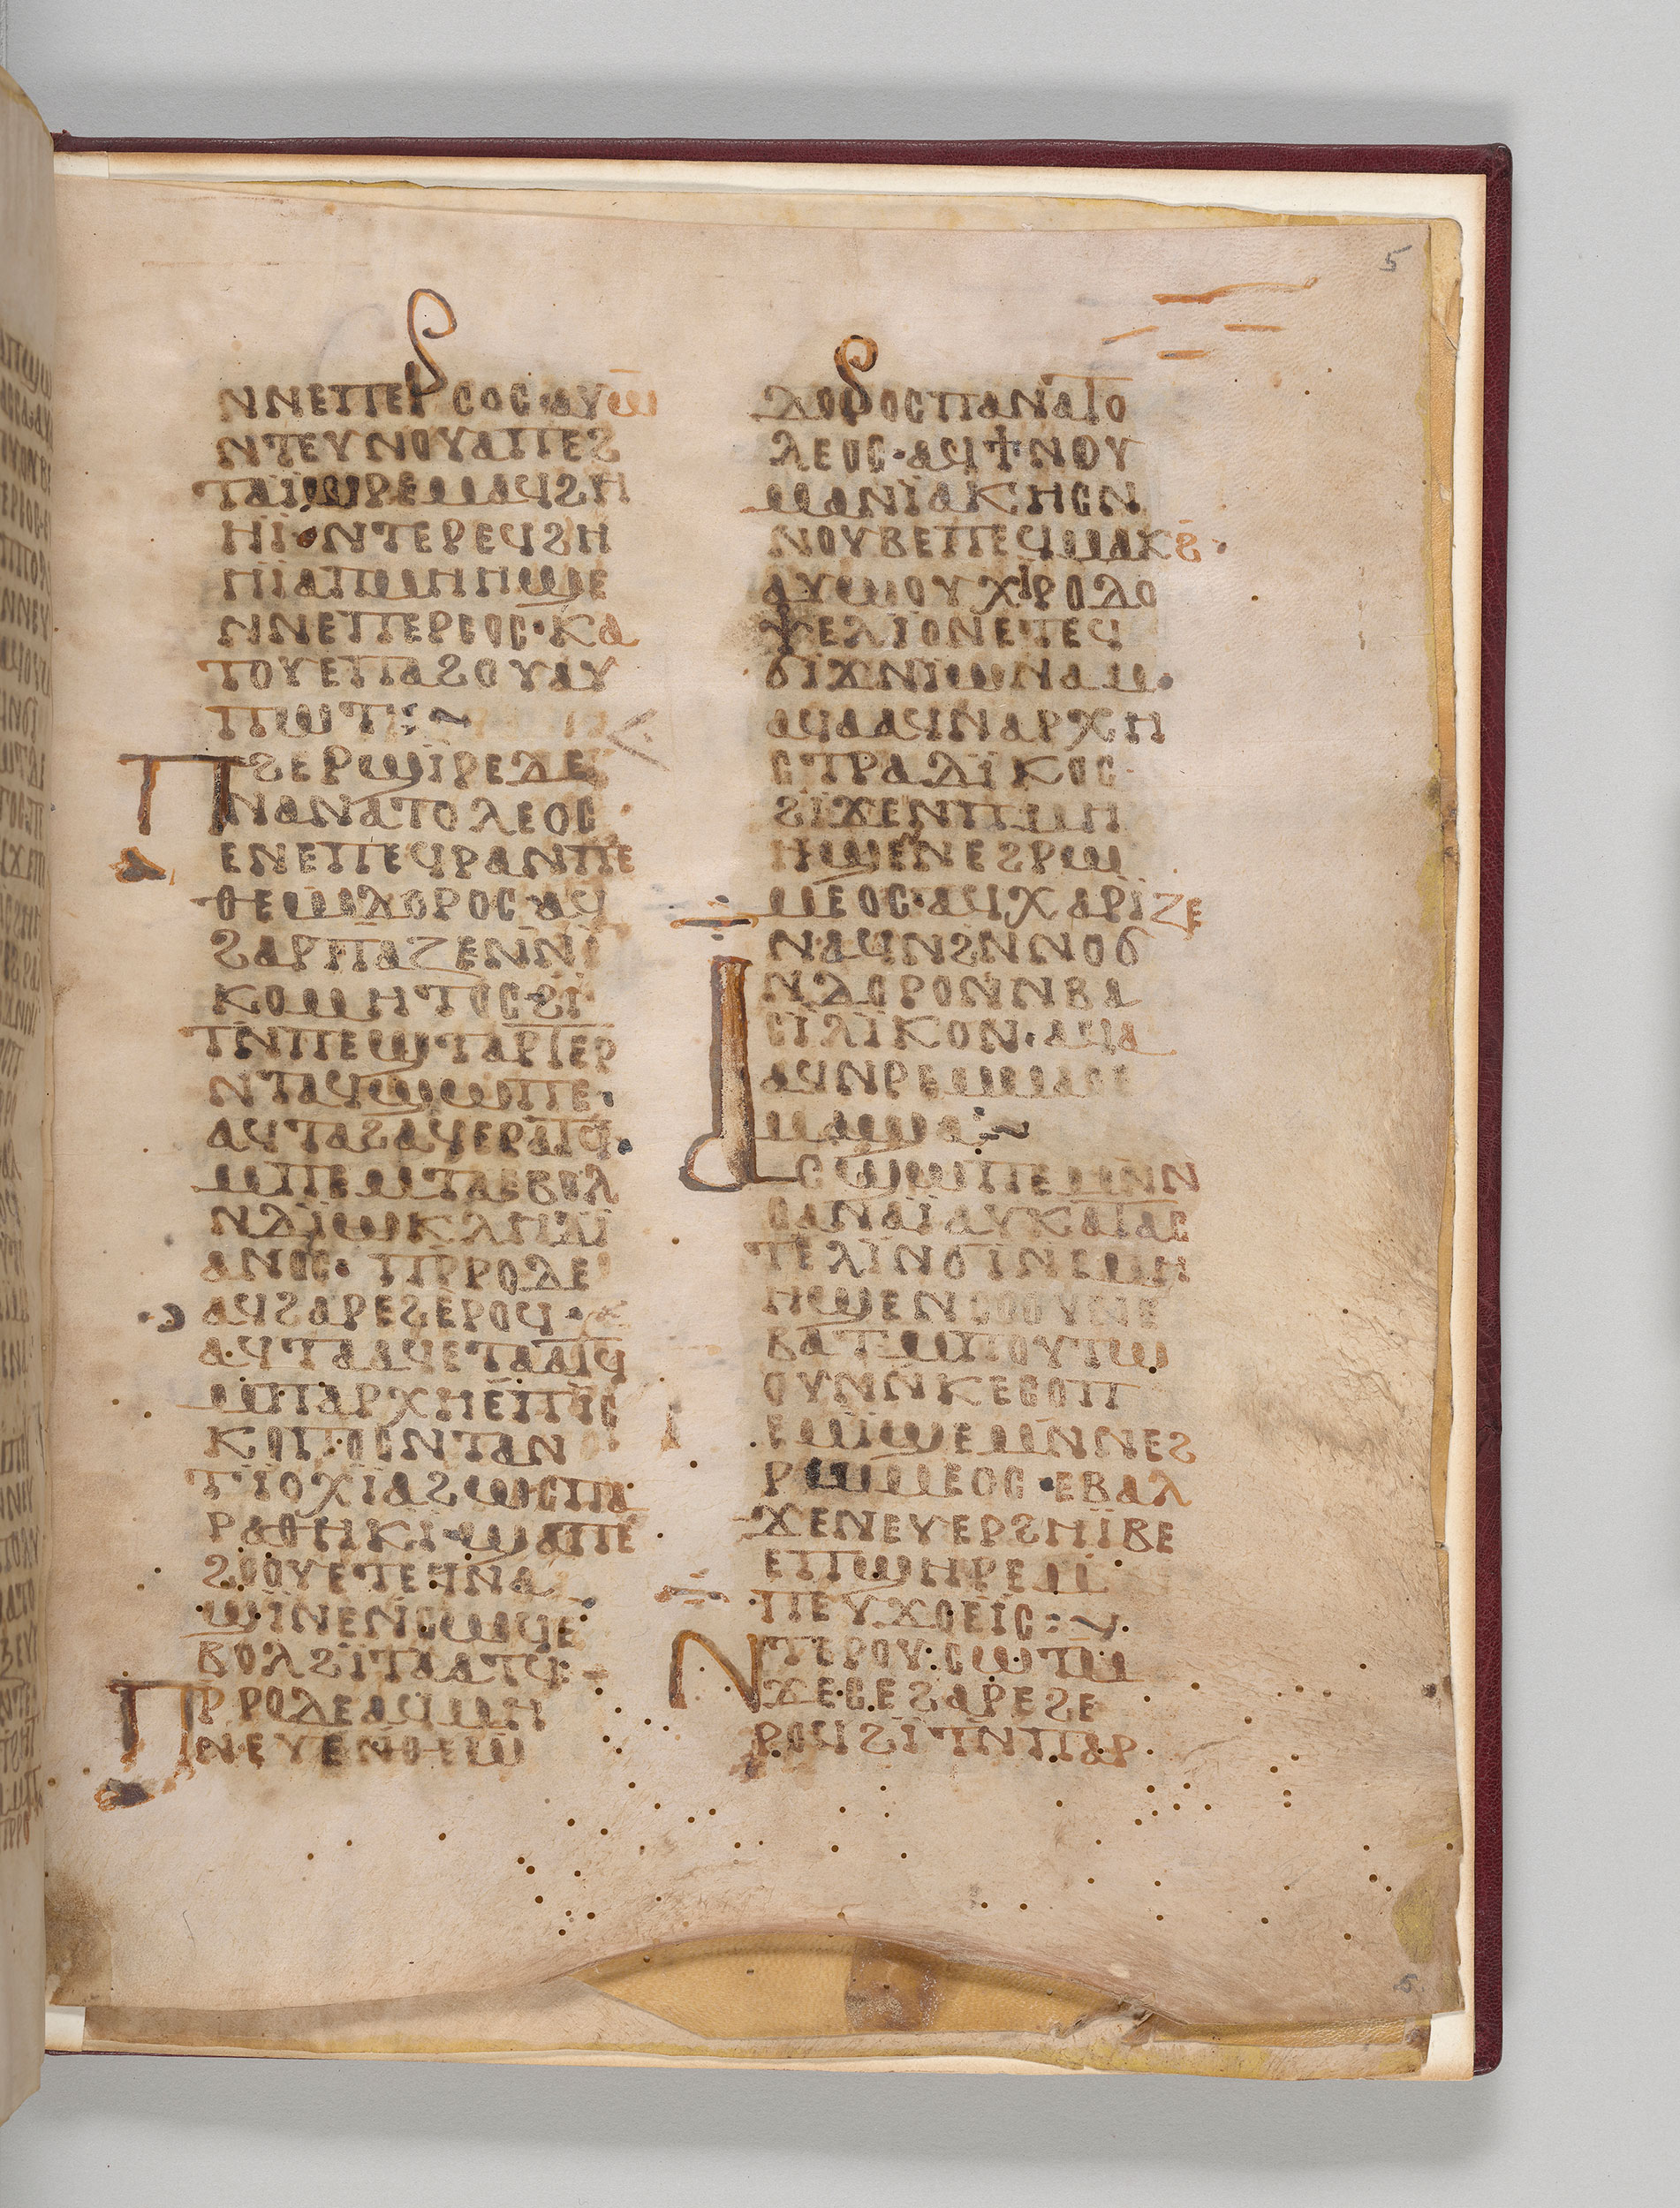 5
ⲚⲚⲈⲠⲈⲢⲤⲞⲤ·ⲀⲨⲰ̅
ⲚⲦⲈⲨⲚⲞⲨⲀⲠⲈϨ
ⲦⲀⲒ̈ⲰⲢⲈⲘⲀϤϨⲎ
ⲎⲒ̈·ⲚⲦⲈⲢⲈϤϨⲎ
ⲎⲒ̈ⲀⲠⲘⲎⲎϢⲈ
ⲚⲚⲈⲠⲈⲢⲤⲞⲤ·ⲔⲀ
ⲦⲞⲨⲈⲠⲀϨⲞⲨⲀⲨ
ⲠⲰⲦ
ⲠϨⲈⲢϢⲒ̈ⲢⲈⲆⲈ
ⲚⲀⲚⲀⲦⲞⲖⲈⲞⲤ
ⲈⲚⲈⲠⲈϤⲢⲀⲚⲠⲈ
ⲐⲈⲰⲆⲞⲢⲞⲤⲀϤ
ϨⲀⲢⲠⲀⲌⲈⲚⲚⲒ̈
ⲔⲞⲘⲎⲦⲞⲤϨⲒ̈
ⲦⲚⲠⲈϢⲦⲀⲢⲦⲈⲢ
ⲚⲦⲀϤϢⲰⲠⲈ·
ⲀϤⲦⲀϨⲀϤⲈⲢⲀⲦϤ
ⲘⲠⲈⲘⲦⲀⲈⲂⲞⲖ
ⲚⲆⲒ̈ⲰⲔⲖⲎⲦⲒ̈
ⲀⲚⲞⲤ· ⲠⲢⲢⲞⲆⲈ
ⲀϤϨⲀⲢⲈϨⲈⲢⲞϤ·
ⲀϤⲦⲀⲀϤⲈⲦⲀⲀⲦϤ
ⲘⲠⲀⲢⲬⲎⲈⲠⲒ̈Ⲥ
ⲔⲞⲠⲞⲤⲚⲦⲀⲚ
ⲦⲒ̈ⲞⲬⲒ̈ⲀϨⲰⲤⲠⲀ
ⲢⲀⲐⲎⲔⲒ·ϢⲀⲠⲈ
ϨⲞⲞⲨⲈⲦⲈϤⲚⲀ
ϢⲒ̈ⲚⲈⲚⲤⲰϤⲈ
ⲂⲞⲖϨⲒ̈ⲦⲀⲀⲦϤ:
ⲠⲢⲢⲞⲆⲈⲀϤⲘⲎ
ⲚⲈⲨⲈⲚⲐⲈⲰ
ⲆⲞⲢⲞⲤⲠⲀⲚⲀⲦⲞ
ⲖⲈⲞⲤ·ⲀϤϮⲚⲞⲨ
ⲘⲀⲚⲒ̈ⲀⲔⲎⲤⲚ
ⲚⲞⲨⲂⲈⲠⲈϤⲘⲀⲔϨ·
ⲀⲨⲰⲞⲨⲬⲒⲢⲞⲆⲞ
ⲮⲈⲖⲒ̈ⲞⲚⲈⲦⲈϤ
ϬⲒϪⲚⲒ̈ⲰⲚⲀⲘ·
ⲀϤⲀⲀϤⲚⲀⲢⲬⲎ
ⲤⲦⲢⲀⲆⲒ̈ⲔⲞⲤ
ϨⲒ̈ϪⲈⲚⲠⲘⲎ
ⲎϢⲈⲚⲚⲈϨⲢⲰ
ⲘⲈⲞⲤ·ⲀϤⲬⲀⲢⲒ̈ⲌⲈ
ⲚⲀϤⲚϨⲚⲚⲞϬ
ⲚⲆⲞⲢⲞⲚⲚⲂⲀ
ⲤⲒ̈ⲖⲒ̈ⲔⲞⲚ·ⲀϤⲀ
ⲀϤⲚⲢⲈⲘⲘⲀⲞ
ⲘⲀϢⲀ
ⲀⲤϢⲰⲠⲈⲘⲚⲚ
ⲤⲀⲚⲀⲒ̈ⲀⲨⲔⲀⲦⲀⲤ
ⲦⲈⲖⲒ̈ⲚϬⲒⲚⲈⲘⲎ
ⲎϢⲈⲚⲤⲞⲞⲨⲚⲈ
ⲂⲀⲦⲘⲠⲞⲨⲦⲰ
ⲞⲨⲚⲚⲔⲈⲤⲞⲠ
ⲈⲘⲒ̈ϢⲈⲘⲚⲚⲈϨ
ⲢⲰⲘⲈⲞⲤ·ⲈⲂⲀⲖ
ϪⲈⲚⲈⲨⲈⲢϨⲎⲒ̈ⲂⲈ
ⲈⲠϢⲎⲢⲈⲘ
ⲠⲈⲨϪⲞⲈⲒ̈Ⲥ
ⲚⲦⲈⲢⲞⲨⲤⲰⲦⲘ
ϪⲈⲤⲈϨⲀⲢⲈϨⲈ
ⲢⲞϤϨⲒ̈ⲦⲚⲠⲀⲢ
5